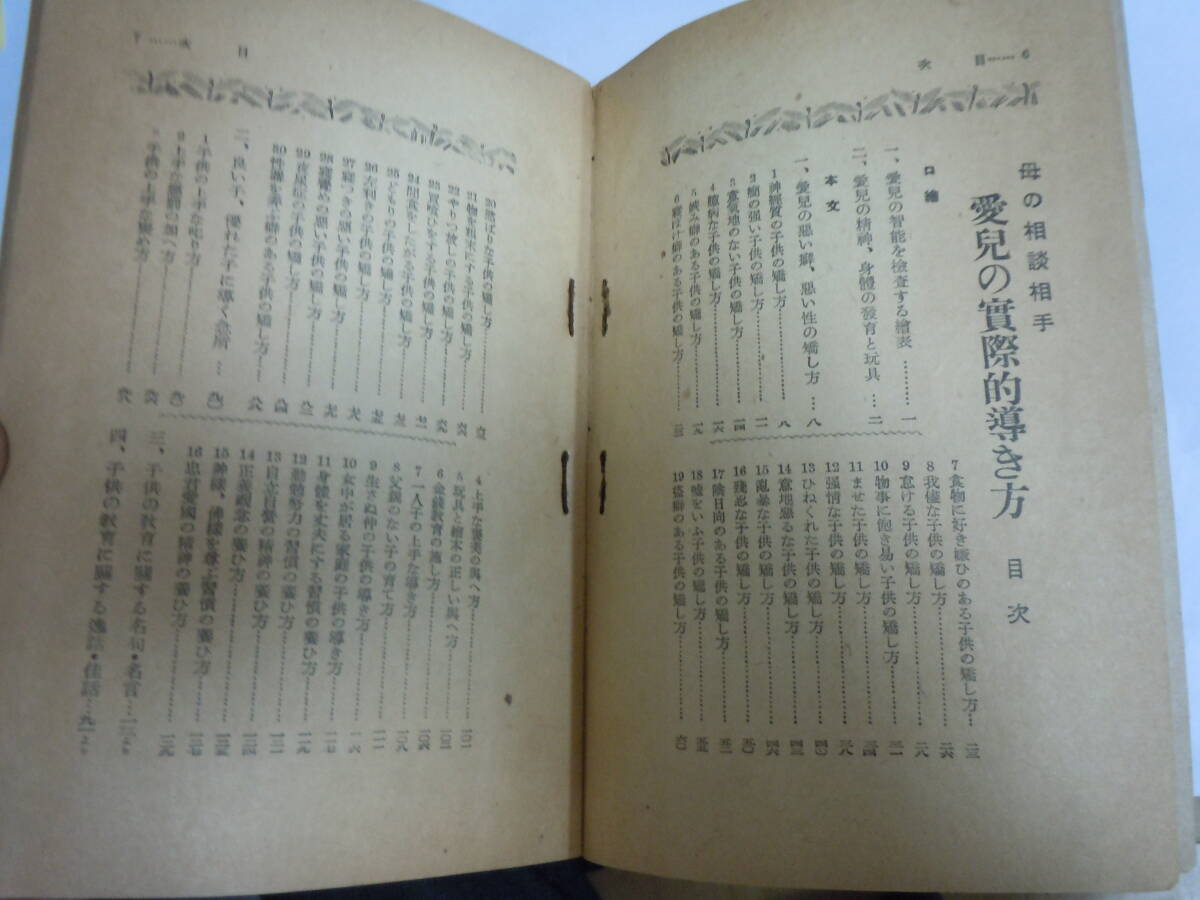 6……目次
母の相談相手
愛兒の實際的導き方 目次
口繪
一、愛兒の智能を檢査する繪表………一
二、愛兒の精神、身體の發育と玩具…二
本文
一、愛兒の惡い癖、惡い性の矯し方…八
1 神經質の子供の矯し方………八
2 癇の强い子供の矯し方………一一
3 意氣地のない子供の矯し方………一四
4 臆病な子供の矯し方………一六
5 妬み癖のある子供の矯し方………一九
6 寢ぼけ癖のある子供の矯し方………二一
7 食物に好き嫌ひのある子供の矯し方…二三
8 我儘な子供の矯し方………二六
9 怠ける子供の矯し方………二八
10 物事に飽き易い子供の矯し方………三一
11 ませた子供の矯し方………三四
12 强情な子供の矯し方………三八
13 ひねくれた子供の矯し方………四〇
14 意地惡るな子供の矯し方………四三
15 亂暴な子供の矯し方………四六
16 殘忍な子供の矯し方………五〇
17 陰日向のある子供の矯し方………五二
18 噓をいふ子供の矯し方………五五
19 盜癖のある子供の矯し方………六〇
目次……7
20 慾ばりな子供の矯し方………六三
21 物を粗末にする子供の矯し方………六六
22 やりつ放しの子供の矯し方………六六
23 買喰ひをする子供の矯し方………
24 間食をしたがる子供の矯し方………
25 どもりの子供の矯し方………
26 左利きの子供の矯し方………
27 寢つきの惡い子供の矯し方………七九
28 寢覺めの惡い子供の矯し方………
29 夜尿症の子供の矯し方………八二
30 性器を弄ぶ癖のある子供の矯し方………
二、良い子、優れた子に導く急所…九〇
1 子供の上手な叱り方………九〇
2 上手な體罰の加へ方………
3 子供の上手な褒め方………九八
4 上手な褒美の與へ方………一〇一
5 玩具と繪本の正しい與へ方………一〇一
6 金錢敎育の施し方………
7 一人子の上手な導き方………
8 父親のない子の育て方………一〇八
9 生さぬ仲の子供の導き方………一一一
10 女中が居る家庭の子供の導き方………
11 身體を丈夫にする習慣の養ひ方………
12 勤勉努力の習慣の養ひ方………一一九
13 自立自營の精神の養ひ方………
14 正義觀念の養ひ方………
15 神樣、佛樣を尊ぶ習慣の養ひ方………
16 忠君愛國の精神の養ひ方………
三、子供の敎育に關する名句・名言…一二より
四、子供の敎育に關する逸話・佳話…九一より